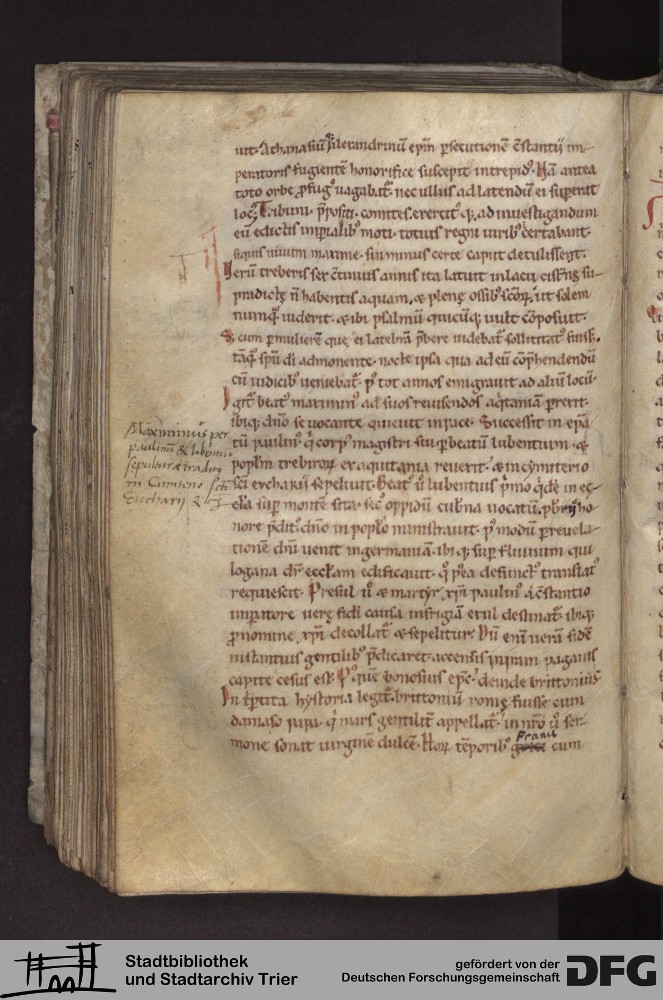 uit. Athanasiũ alexandrinũ epm̃ psecutionẽ c̃stantij im-
peratoris fugientẽ honorifice suscepit intrepid᷒. Nã antea
toto orbe pfug᷒ uagabat᷑. nec ullus ad latendũ ei supererat
loc᷒. Tribuni. p̃positi. comites. exercit᷒ q;. ad inuestigandum
eũ edictis imp̃ialib᷒ moti. totius regni uirib᷒ certabant.
siquis uiuum maxime. sin minus certe caput detulissent.
Verũ treberis sex c̃tinuis annis ita latuit in lacu cisterne su-
pradictę ñ habentis aquam. & plenę ossib᷒ scõꝝ. ut solem
numq̃ uiderit. & ibi psalmũ quicũq; uult cõposuit.
S; cum p mulierẽ que ei latebrã p̃bere uidebat᷑ sollicitat᷒ fuiss&.
tãq̃ spũ di admonente. nocte ipsa qua ad eũ cõphendendũ
cũ iudicib᷒ ueniebat᷑. p᷒ tot annos emigrauit ad aliũ locũ.
Igit᷑ beat᷒ maximin᷒ ad suos reuisendos aq̃taniã perrexit.
ibiq; dño se uocante quieuit in pace. Successit in epã
tũ paulin᷒. q̃ corp᷒ magistri sui p beatum lubentium. &
poplm̃ trebiroꝝ ex aquitania reuexit. & in cymiterio
sci eucharii sepeliuit. Beat᷒ ũ lubentius p̃mo q̃de in ec-
clia sup montẽ sita. sec᷒ oppidũ cubrna uocatũ. pbrij ho
nore p̃dit᷒. dño in poplo ministrauit. p᷒ modũ p reuela-
tionẽ dñi uenit in germaniã. ibiq; sup fluuium qui
logana dr̃ eccliam edificauit. q̃ p᷒ea defunct᷒ translat᷒
requiescit. Presul ũ & martyr xpi paulin᷒ a c̃stantio
imperatore uerę fidei causa in frigiã exul destinat᷑. ibiq;
p nomine xpi decollat᷑ & sepelitur. Dũ enĩ uerã fidẽ
instantius gentilib᷒ p̃dicaret. accensis in iram paganis
capite cesus est. P᷒ quẽ bonosius epc̃. deinde brittonius.
In tp̃tita hystoria legit᷑. brittoniũ romę fuisse cum
damaso papa. q̃ mars gentilit᷑ appellat᷑. in nr̃o ũ ser-
mone sonat uirginẽ dulcẽ. Horꝝ tẽporib᷒ Franci cum
Maximinus per
paulinũ & lubentiũ
sepulturę traditur
in Cimiterio scti
Eucharij
Stadtbibliothek
und Stadtarchiv Trier
gefördert von der
Deutschen Forschungsgemeinschaft
DFG